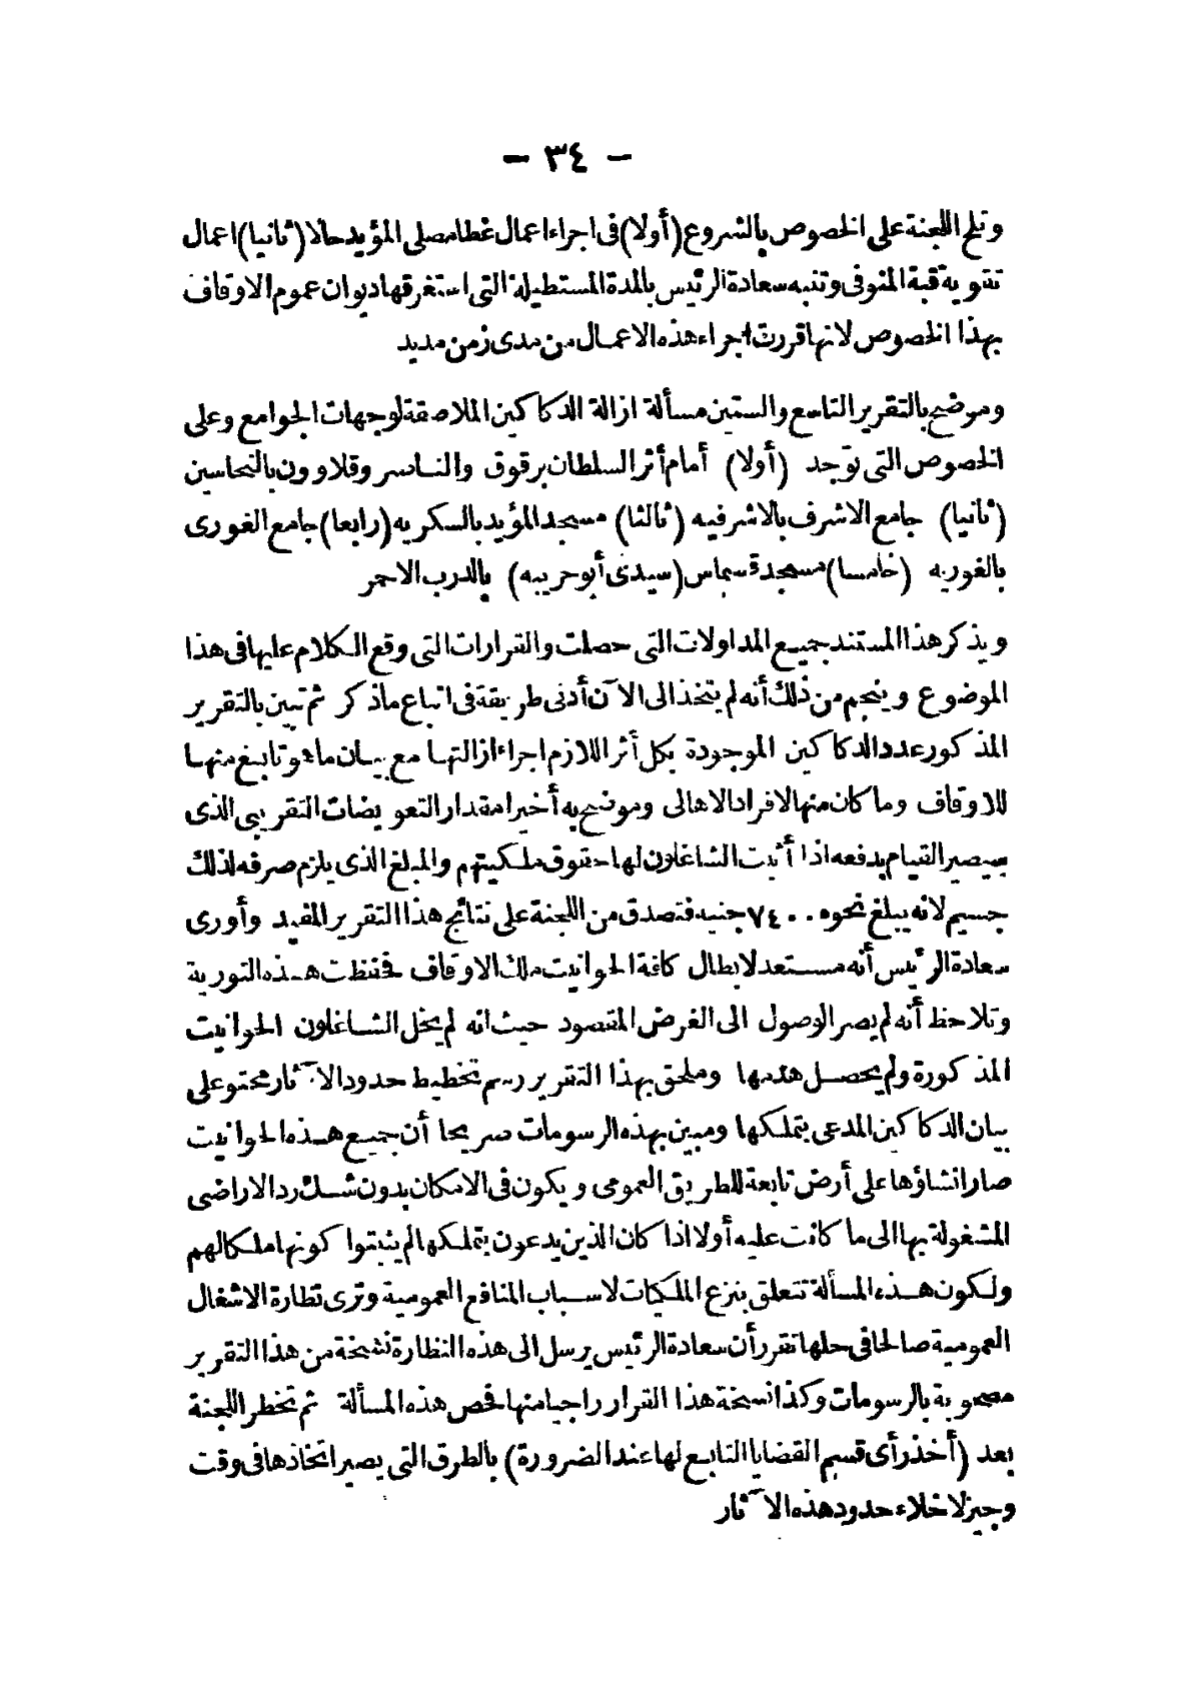 — ٣٤ —
وتلح اللجنة على الخصوص بالشروع (أولا) فى اجراء اعمال غطا مصلى المؤيد حالا (ثانيا) اعمال
تقوية قبة المنوفى وتنبه سعادة الرئيس بالمدة المستطيلة التى استغرقها ديوان عموم الاوقاف
بهذا الخصوص لانها قررت اجراء هذه الاعمال من مدى زمن مديد
وموضح بالتقرير التاسع والستين مسألة ازالة الدكاكين الملاصقة لوجهات الجوامع وعلى
الخصوص التى توجد (أولا) أمام أثر السلطان برقوق والناسر وقلاوون بالنحاسين
(ثانيا) جامع الاشرف بالاشرفيه (ثالثا) مسجد المؤيد بالسكريه (رابعا) جامع الغورى
بالغوريه (خامسا) مسجد قسماس (سيدى أبو حريبه) بالدرب الاحمر
ويذكر هذا المستند جميع المداولات التى حصلت والقرارات التى وقع الكلام عليها فى هذا
الموضوع وينجم من ذلك أنه لم يتخذ الى الآن أدنى طريقة فى اتباع ماذكر ثم تبين بالتقرير
المذكور عدد الدكاكين الموجودة بكل أثر اللازم اجراء ازالتها مع بيان ماهو تابع منها
للاوقاف وما كان منها لافراد الاهالى وموضح به أخيرا مقدار التعويضات التقريبى الذى
سيصير القيام بدفعه اذا أثبت الشاغلون لها حقوق ملكيتهم والمبلغ الذى يلزم صرفه لذلك
جسيم لانه يبلغ نحو ٧٤٠٠٥ جنيه فتصدق من اللجنة على نتائج هذا التقرير المفيد وأورى
سعادة الرئيس أنه مستعد لابطال كافة الحوانيت ملك الاوقاف فحفظت هذه التورية
وتلاحظ أنه لم يصر الوصول الى الغرض المقصود حيث انه لم يخل الشاغلون الحوانيت
المذكورة ولم يحصل هدمها وملحق بهذا التقرير رسم تخطيط حدود الآثار محتو على
بيان الدكاكين المدعى بتملكها ومبين بهذه الرسومات صريحا أن جميع هذه الحوانيت
صار انشاؤها على أرض تابعة للطريق العمومى ويكون فى الامكان بدون شك رد الاراضى
المشغولة بها الى ما كانت عليه أولا اذا كان الذين يدعون بتملكها لم يثبتوا كونها ملكا لهم
ولكون هذه المسألة تتعلق بنزع الملكيات لاسباب المنافع العمومية وترى نظارة الاشغال
العمومية صالحا فى حلها تقرر أن سعادة الرئيس يرسل الى هذه النظارة نسخة من هذا التقرير
مصحوبة بالرسومات وكذا نسخة هذا القرار راجيا منها فحص هذه المسألة ثم تخطر اللجنة
بعد (أخذ رأى قسم القضايا التابع لها عند الضرورة) بالطرق التى يصير اتخاذها فى وقت
وجيز لاخلاء حدود هذه الآثار